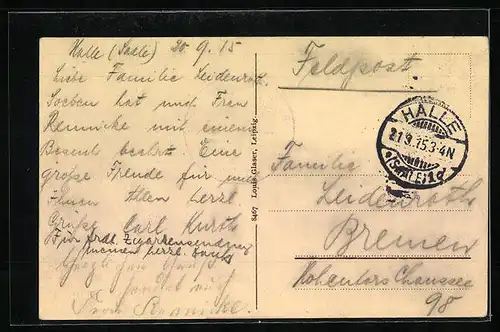 Halle (Saale) 20.9.15
Liebe Familie Leidenroth.
Soeben hat mich Frau
Rennicke mit einem
Besuch beehrt. Eine
große Freude für mich
Ihnen Allen herzl
Grüße Carl Kuroth
Für frdl. Zigarrensendung
meinen herzl. Dank
Frau Rennicke.
8467 Louis Glaser, Leipzig.
Feldpost
HALLE
21.9.15.3-4N
(SAALE) 1
Familie
Leidenroth
Bremen
Hohentors Chaussee
98